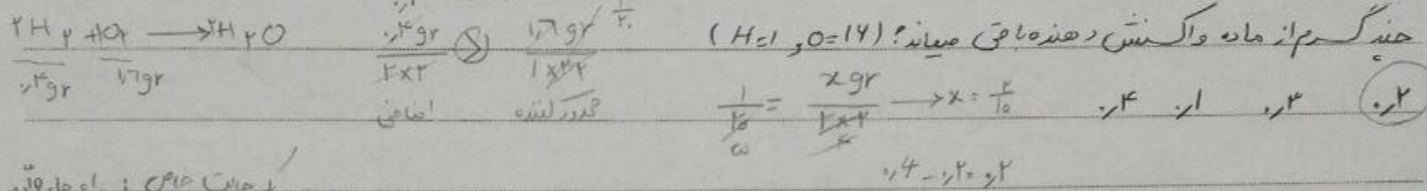 چند گرم از ماده واکنش دهنده باقی میماند؟ (H=1 , O=16)
۰٫۲ ۰٫۳ ۰٫۱ ۰٫۴
2H₂ + O₂ → 2H₂O
۰٫۴gr ۱٫۶gr
۰٫۴gr / ۲×۲ > ۱٫۶gr / ۱×۳۲ ۱/۲۰
اضافی محدودکننده
۱/۲۰ = x gr / ۲×۲ → x = ۲/۱۰
۵
۰٫۴ - ۰٫۲ = ۰٫۲